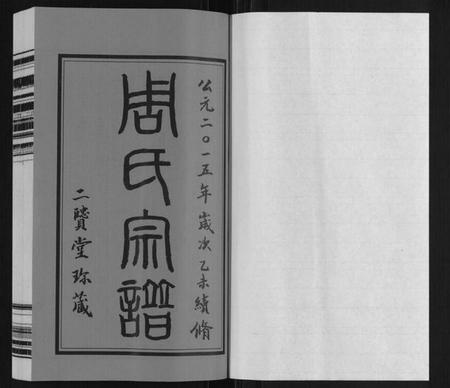 公元二〇一五年歲次乙未續脩
周氏宗譜
二賢堂珍藏